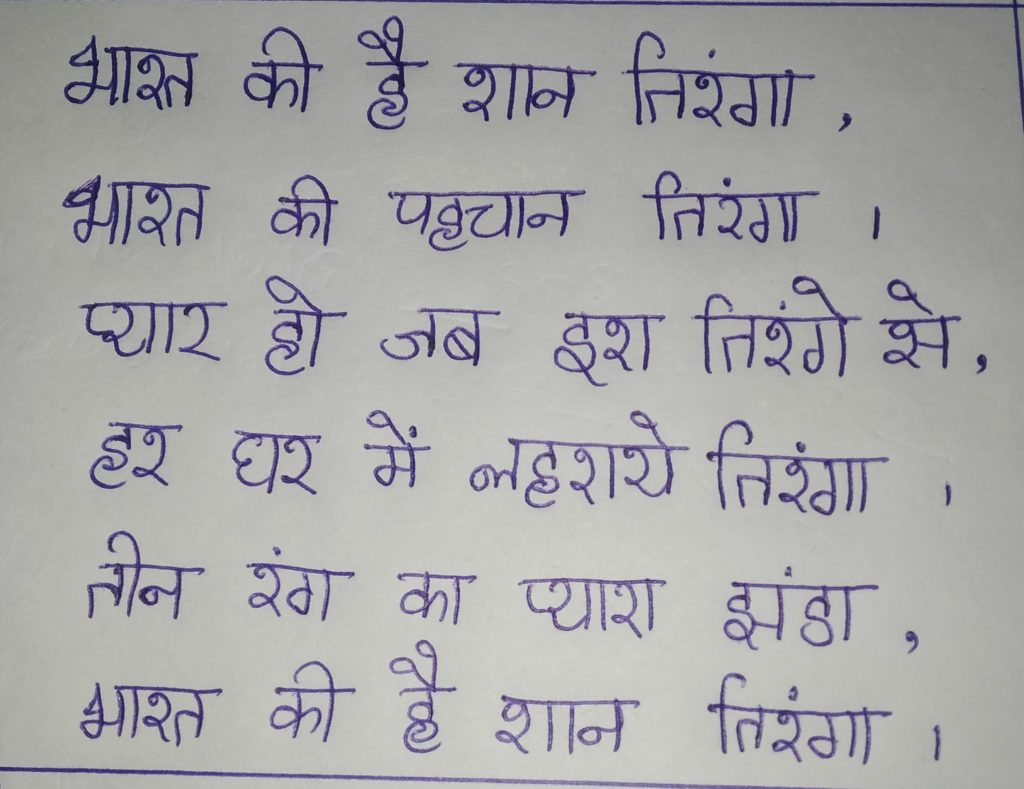 भारत की है शान तिरंगा ,
भारत की पहचान तिरंगा ।
प्यार हो जब इश तिरंगे से,
हर घर में लहराये तिरंगा ।
तीन रंग का प्यारा झंडा ,
भारत की है शान तिरंगा ।